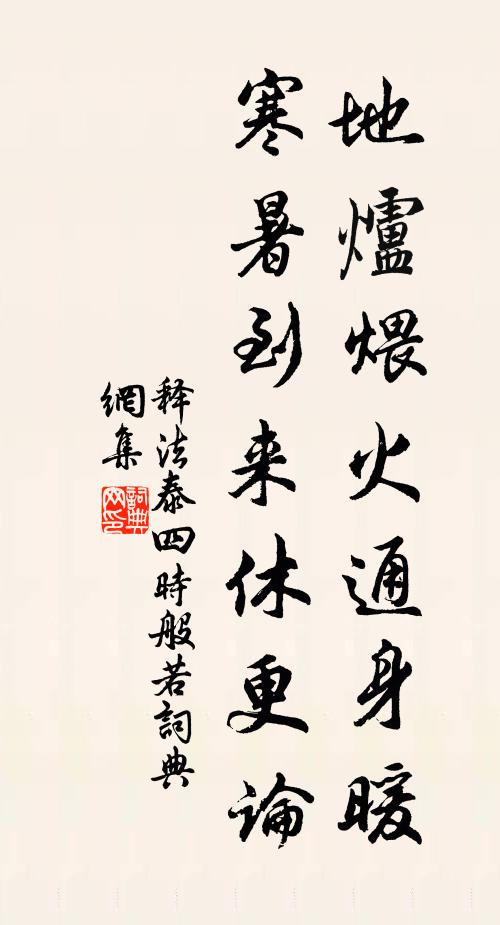 地爐煨火通身暖
寒暑到来休更論
释法泰四時般若詞典
網集
詞典
网印